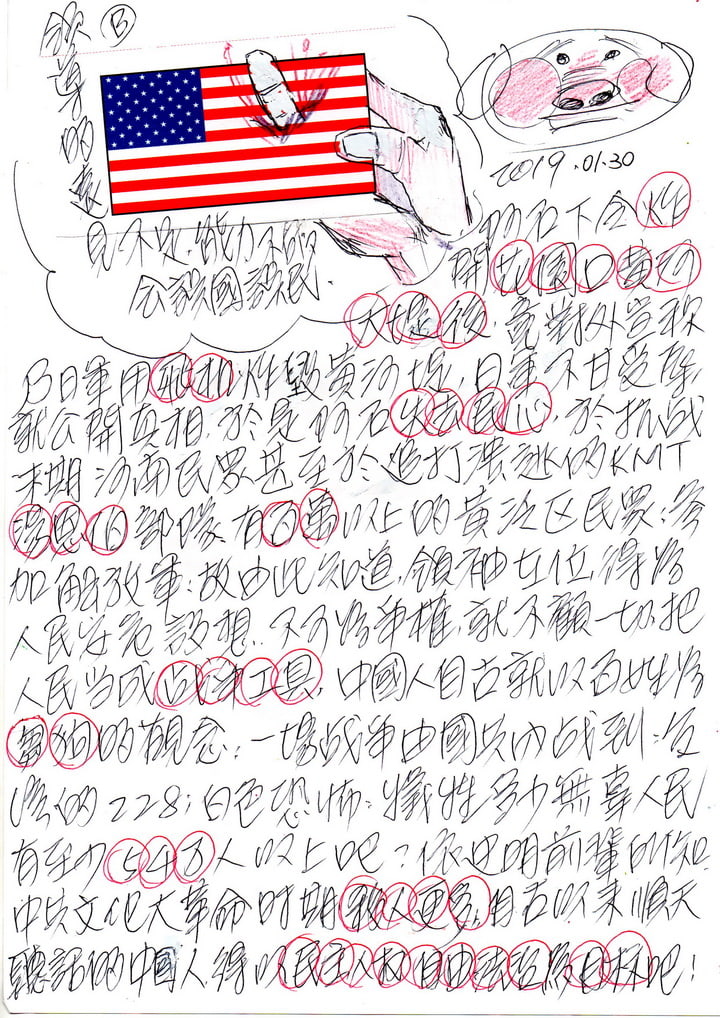 領導的遠 B
見不足,能力不夠
會誤國誤民.
2019.01.30
的石下令炸
開花園口黃河
大堤後,竟對外宣稱
B日軍用飛机炸毀黃河堤,日軍不甘受辱,
就公開真相,於是的石失去民心,於抗战
末期河南民眾甚至於追打潰逃的KMT
湯恩伯部隊,有百萬以上的黃泛区民眾;參
加解放軍;故由此知道,領袖在位,得為
人民安危設想.不可為爭權,就不顧一切.把
人民当成战争工具,中國人自古就以百姓為
芻狗的觀念;一場战争由國共内战到;
後的228;白色恐怖;犧牲多少無辜人民
有至少540人以上吧?依史明前輩的知
中共文化大革命时期殺人更多,自古以来順天
聽話的中國人,得以民主人权自由法治為目标吧!